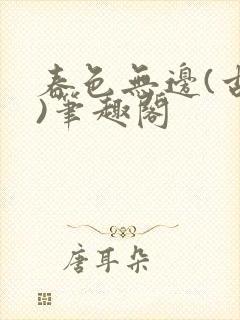 春色無邊(古
)筆趣閣
唐耳朵